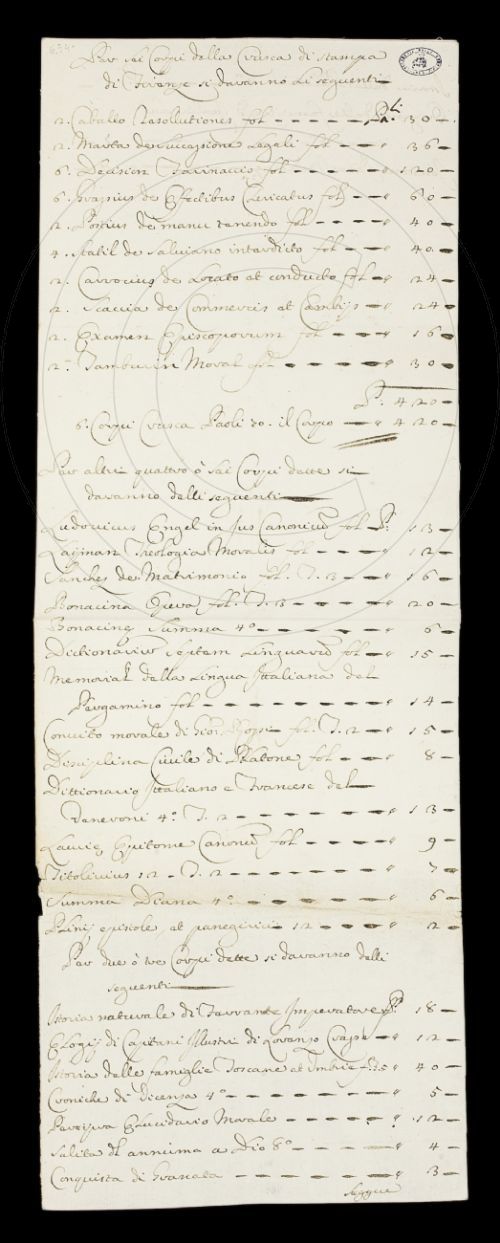 Per sei Corpi della Crusca di stampa
di Firenze si davanno li seguenti
2. Caballo Resolutiones fol 30
2. Marta de Succession Legali fol 36
6. Decision Farinacio fol 120
6. de Effectibus Clericatus fol 60
2. Postius de manu tenendo fol 40
4. de Salviano interdicto fol 40
2. Carrocius de Locato et conducto fol 24
2. Scaccia de Commercis et Cambijs 24
2. Examen Episcoporum fol 16
2. Tamburin Moral fol 30
P. 420
6. Corpi Crusca Paoli 70. il Corpo 420
Per altri quattro ò sei Corpi dette si
davanno delli seguenti
Ludovicus Engel in Jus Canonicũ fol P. 13
Layman Theologia Moralis fol 12
Sanchez de Matrimonio fol. T. 3 16
Bonacina Opera fol. T. 3 20
Bonacinę Summa 4º 6
Dictionariũ Septem Linguarũ fol 15
Memorial della Lingua Ittaliana del
Pergamino fol 14
Convito morale di fol. T. 2 15
Disciplina Civile di Platone fol 8
Dittionario Ittaliano e Francese del
Veneroni 4º. T. 2 13
Epitome Canonũ fol 9
Titolivius 12 T. 2 7
Summa Diana 4º 6
Plinij epistole, et panegirici 12 2
Per due ò tre Corpi dette si davanno delli
seguenti
Istoria naturale di Ferrante Imperato P. 18
Elogij di Capitani Illustri di Lorenzo Crasso 12
Istoria delle famiglie Toscane et Umbre f. T. 5 40
Croniche di Vicenza 4º 5
Elucidario Morale 12
Salita dl annima a Dio 8º 4
Conquista di Granata 3
Seggue